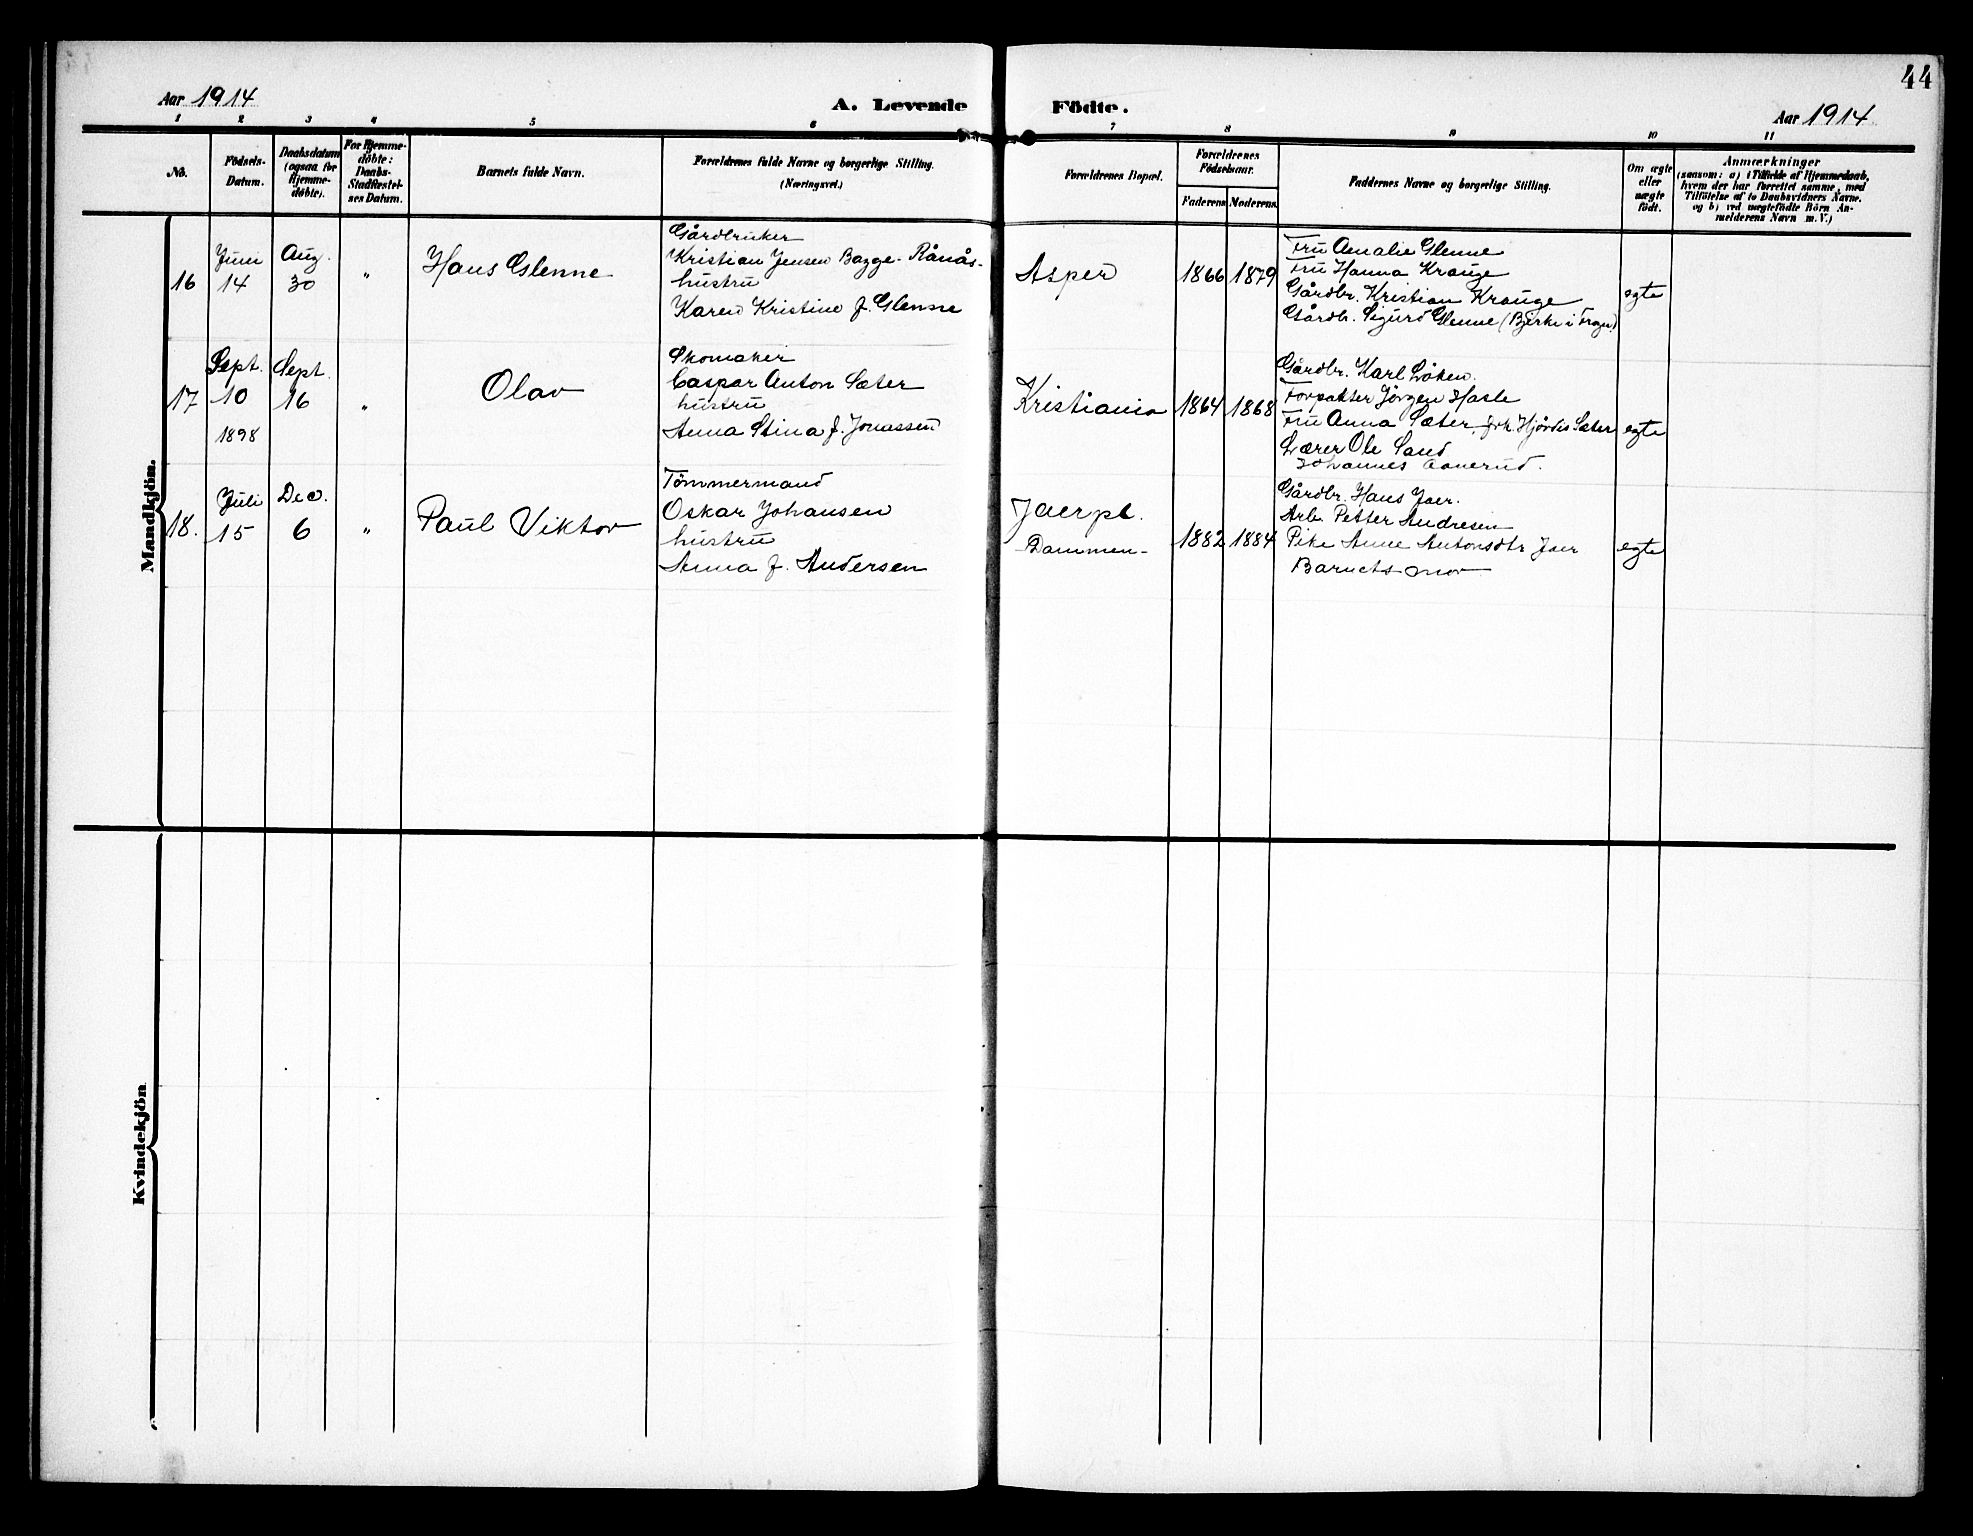 44
Aar 1914
A. Levende Födte.
Aar 1914
1 2 3 4 5 6 7 8 9 10 11
No.
Födsels-
Datum.
Daabsdatum
(ogsaa for
Hjemme-
döbte).
For Hjemme-
döbte:
Daabs-
Stadfæstel-
ses Datum.
Barnets fulde Navn.
Forældrenes fulde Navne og borgerlige Stilling.
(Næringsvei.)
Forældrenes Bopæl.
Forældrenes
Födselsaar.
Faderens Moderens.
Faddernes Navne og borgerlige Stilling.
Om ægte
eller
uægte
födt.
Anmærkninger
(saasom: a) i Tilfælde af Hjemmedaab,
hvem der har forrettet samme, med
Tilföielse af to Daabsvidners Navne,
og b) ved uægtefödte Börn An-
melderens Navn m. V.)
Mandkjön.
16
Juni
14
Aug.
30
"
Hans Glenne
Gårdbruker
Kristian Jensen Bagge-Rånås-
hustru
Karen Kristine f. Glenne
Asper
1866 1879
Fru Amalie Glenne
Fru Hanna Krauge
Gårdbr. Kristian Krauge
Gårdb. Sigurd Glenne (Bjerke i Frogn)
egte
17
Sept.
10
1898
Sept.
16
"
Olav
Skomaker
Caspar Anton Sæter
hustru
Anna Stina f. Jonassen
Kristiania
1864 1868
Gårdbr. Karl Löken.
Forpakter Jörgen Hasle
Fru Anna Sæter, frk. Hjördis Sæter
Lærer Ole Sand
Johannes Aanerud.
egte
18.
Juli
15
Dec.
6
"
Paul Viktor
Tömmermand
Oskar Johansen
hustru
Anna f. Andersen
Jaerpl.
Dammen-
1882 1884
Gårdbr. Hans Jaer.
Arb. Petter Andresen
Pike Anne Antonsdtr Jaer
Barnets mor
egte
Kvindekjön